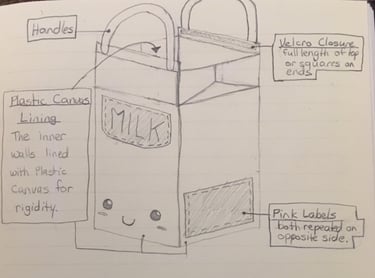 Handles
Velcro Closure
full length of top
or squares on
ends.
Plastic Canvas
Lining
The inner
walls lined
with Plastic
Canvas for
rigidity.
MILK
Pink Labels
both repeated on
opposite side.